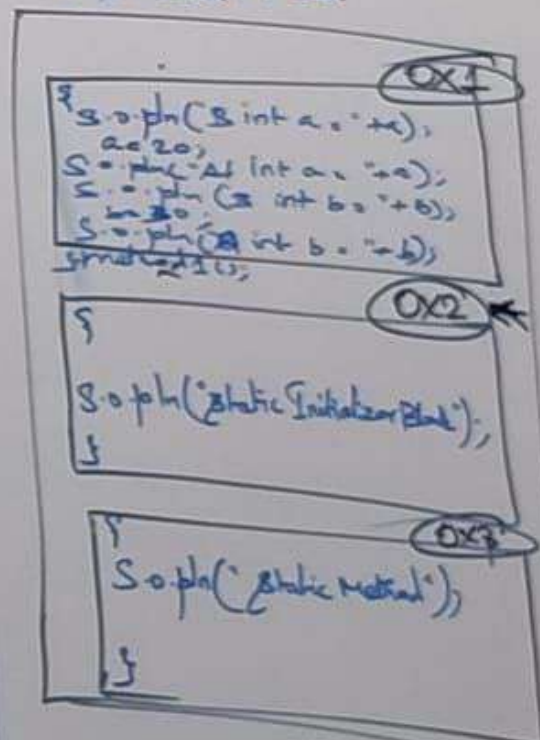 0X1
{
S.o.pln(B int a = "+a);
a = 20;
S.o.pln("Af int a = "+a);
S.o.pln(B int b = "+b);
S.o.pln(A int b = "+b);
0X2
{
S.o.pln("Static Initializer Block");
}
0X3
{
S.o.pln("Static Method");
}